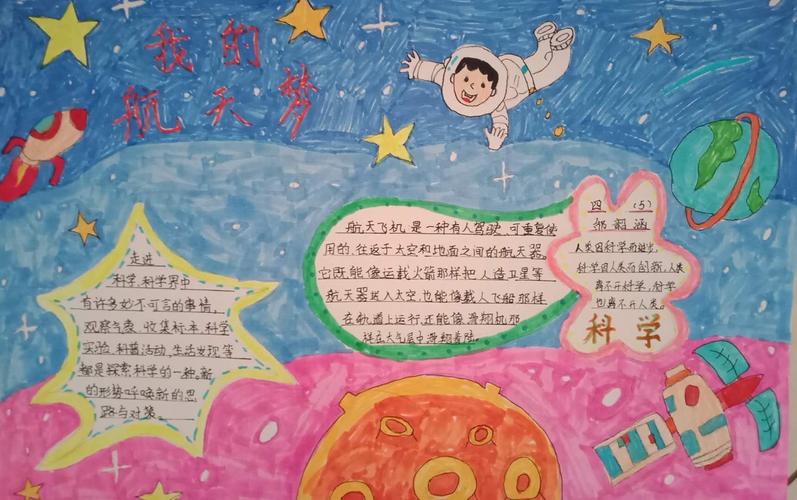 我的
航天梦
走进
科学,科学界中
有许多妙不可言的事情,
观察气象、收集标本、科学
实验、科普活动、生活发现等
都是探索科学的一种。新
的形势呼唤新的思
路与对策。
航天飞机是一种有人驾驶、可重复使
用的、往返于太空和地面之间的航天器。
它既能像运载火箭那样把人造卫星等
航天器送入太空,也能像载人飞船那样
在轨道上运行,还能像滑翔机那
样在大气层中滑翔着陆。
四 (5)
韵涵
人类因科学而进步,
科学因人类而创新,人类
离不开科学,科学
也离不开人类。
科学